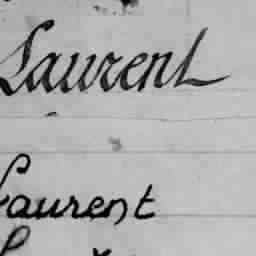 Laurent
Laurent